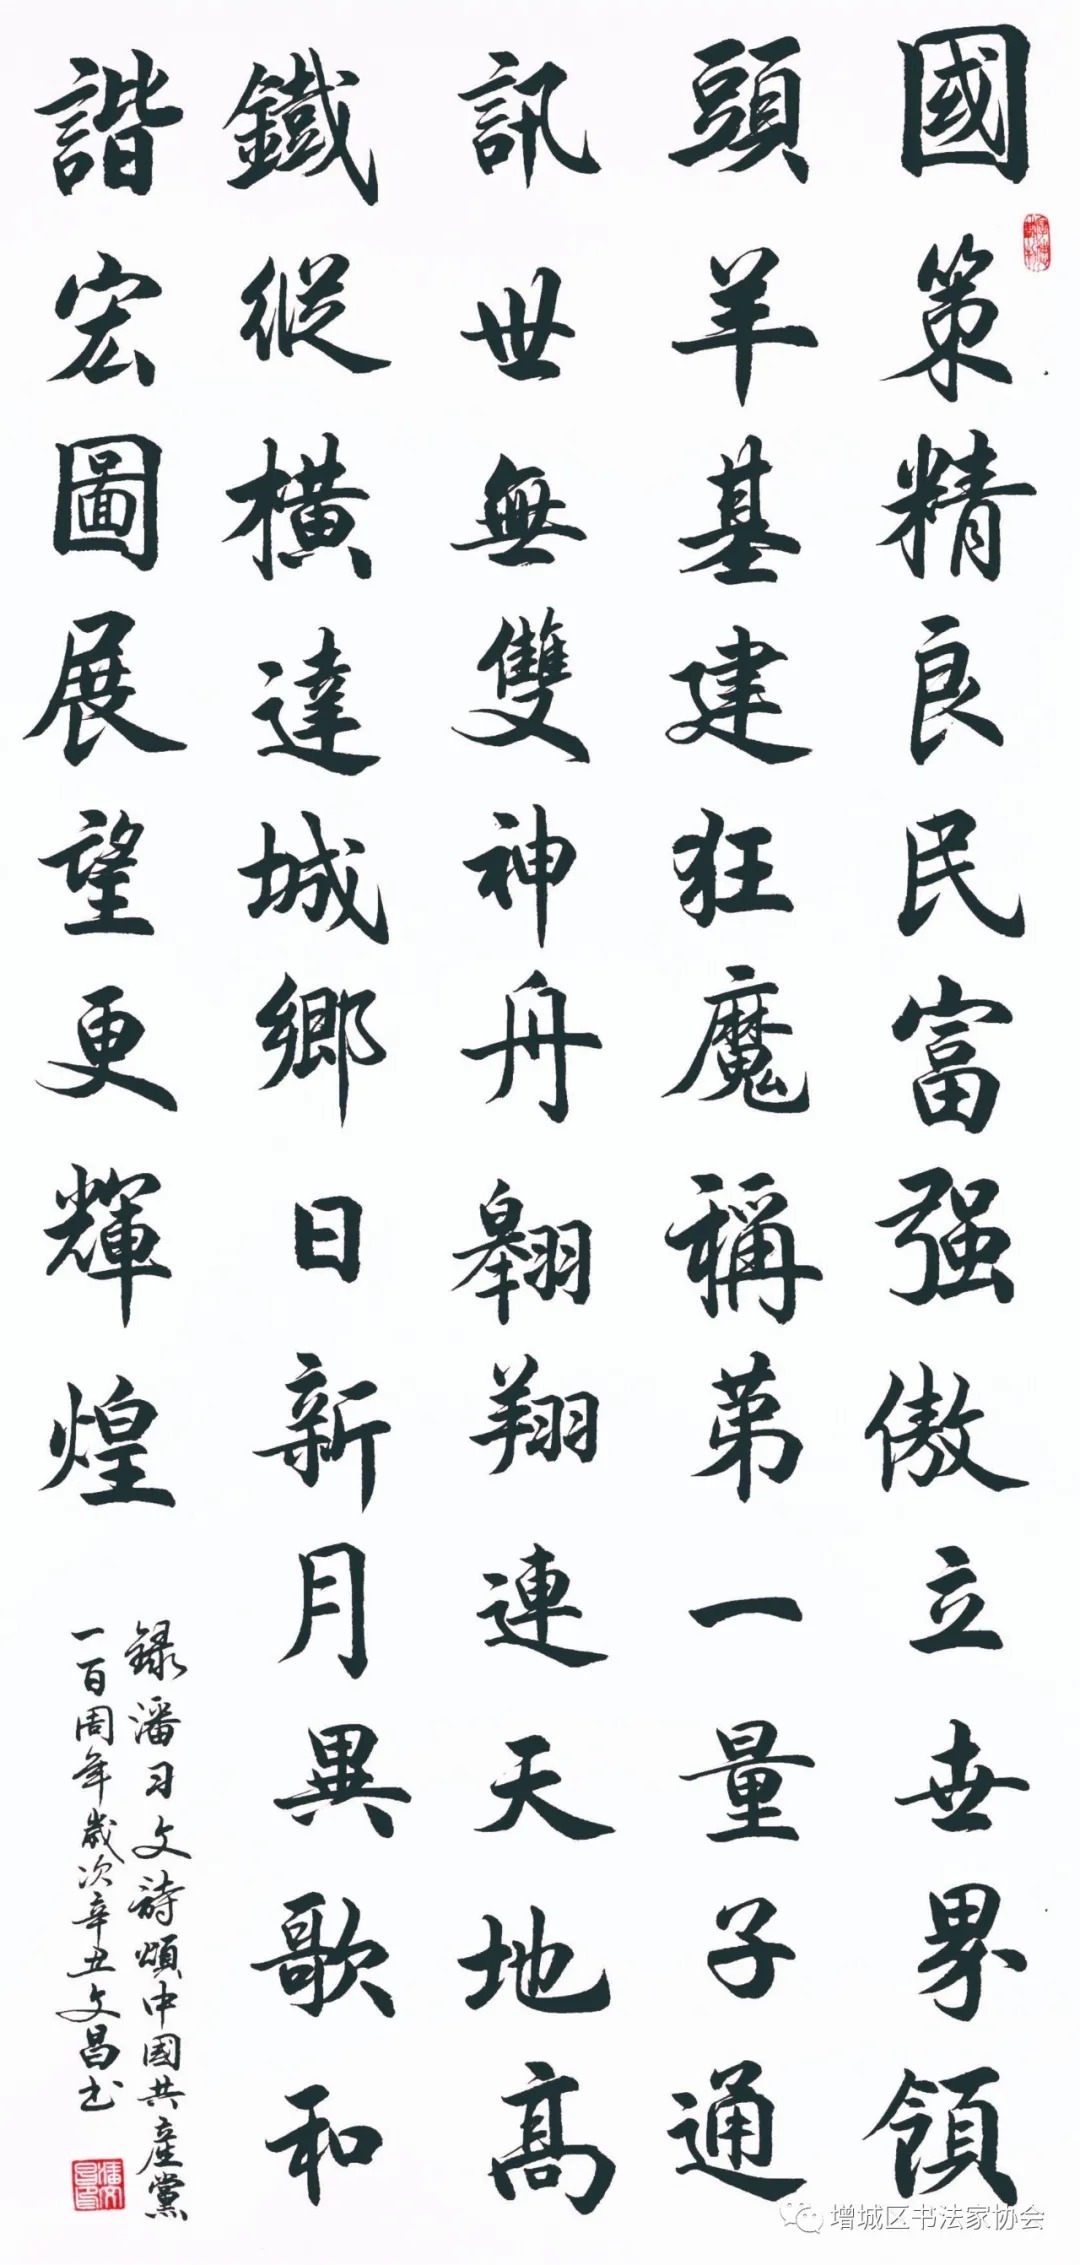 國策精良民富强傲立世界領
頭羊基建狂魔稱第一量子通
訊世無雙神舟翱翔連天地高
鐵縱橫達城鄉日新月異歌和
諧宏圖展望更輝煌
録潘习文詩頌中國共產黨
一百周年歲次辛丑文昌书
增城区书法家协会